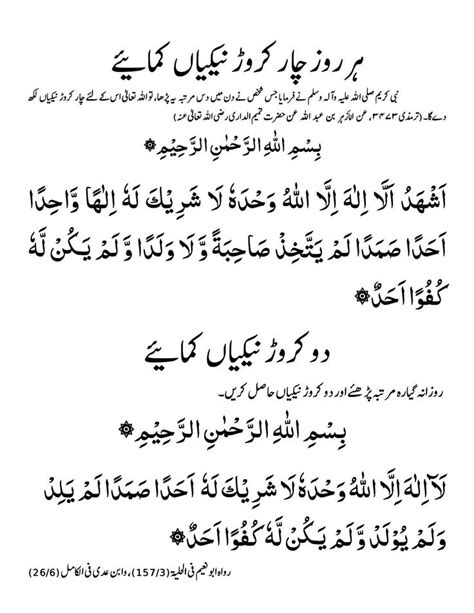 ہر روز چار کروڑ نیکیاں کمائیے
نبی کریم صلی اللہ علیہ وآلہ وسلم نے فرمایا جس شخص نے دن میں دس مرتبہ یہ پڑھا، تو اللہ تعالیٰ اس کے لئے چار کروڑ نیکیاں لکھ
دے گا۔ (ترمذی ۳۴۷۳، عن الازہر بن عبد اللہ عن حضرت تمیم الداری رضی اللہ تعالیٰ عنہ)
بِسْمِ اللّٰهِ الرَّحْمٰنِ الرَّحِيْمِ۞
اَشْهَدُ اَلَّا اِلٰهَ اِلَّا اللّٰهُ وَحْدَهٗ لَا شَرِيْكَ لَهٗ اِلٰهًا وَّاحِدًا
اَحَدًا صَمَدًا لَمْ يَتَّخِذْ صَاحِبَةً وَّ لَا وَلَدًا وَّ لَمْ يَكُنْ لَّهٗ
كُفُوًا اَحَدٌ۞
دو کروڑ نیکیاں کمائیے
روزانہ گیارہ مرتبہ پڑھئے اور دو کروڑ نیکیاں حاصل کریں۔
بِسْمِ اللّٰهِ الرَّحْمٰنِ الرَّحِيْمِ۞
لَآ اِلٰهَ اِلَّا اللّٰهُ وَحْدَهٗ لَا شَرِيْكَ لَهٗ اَحَدًا صَمَدًا لَمْ يَلِدْ
وَلَمْ يُوْلَدْ وَلَمْ يَكُنْ لَّهٗ كُفُوًا اَحَدٌ۞
رواہ ابو نعیم فی الحلیۃ (157/3)، وابن عدی فی الکامل (26/6)